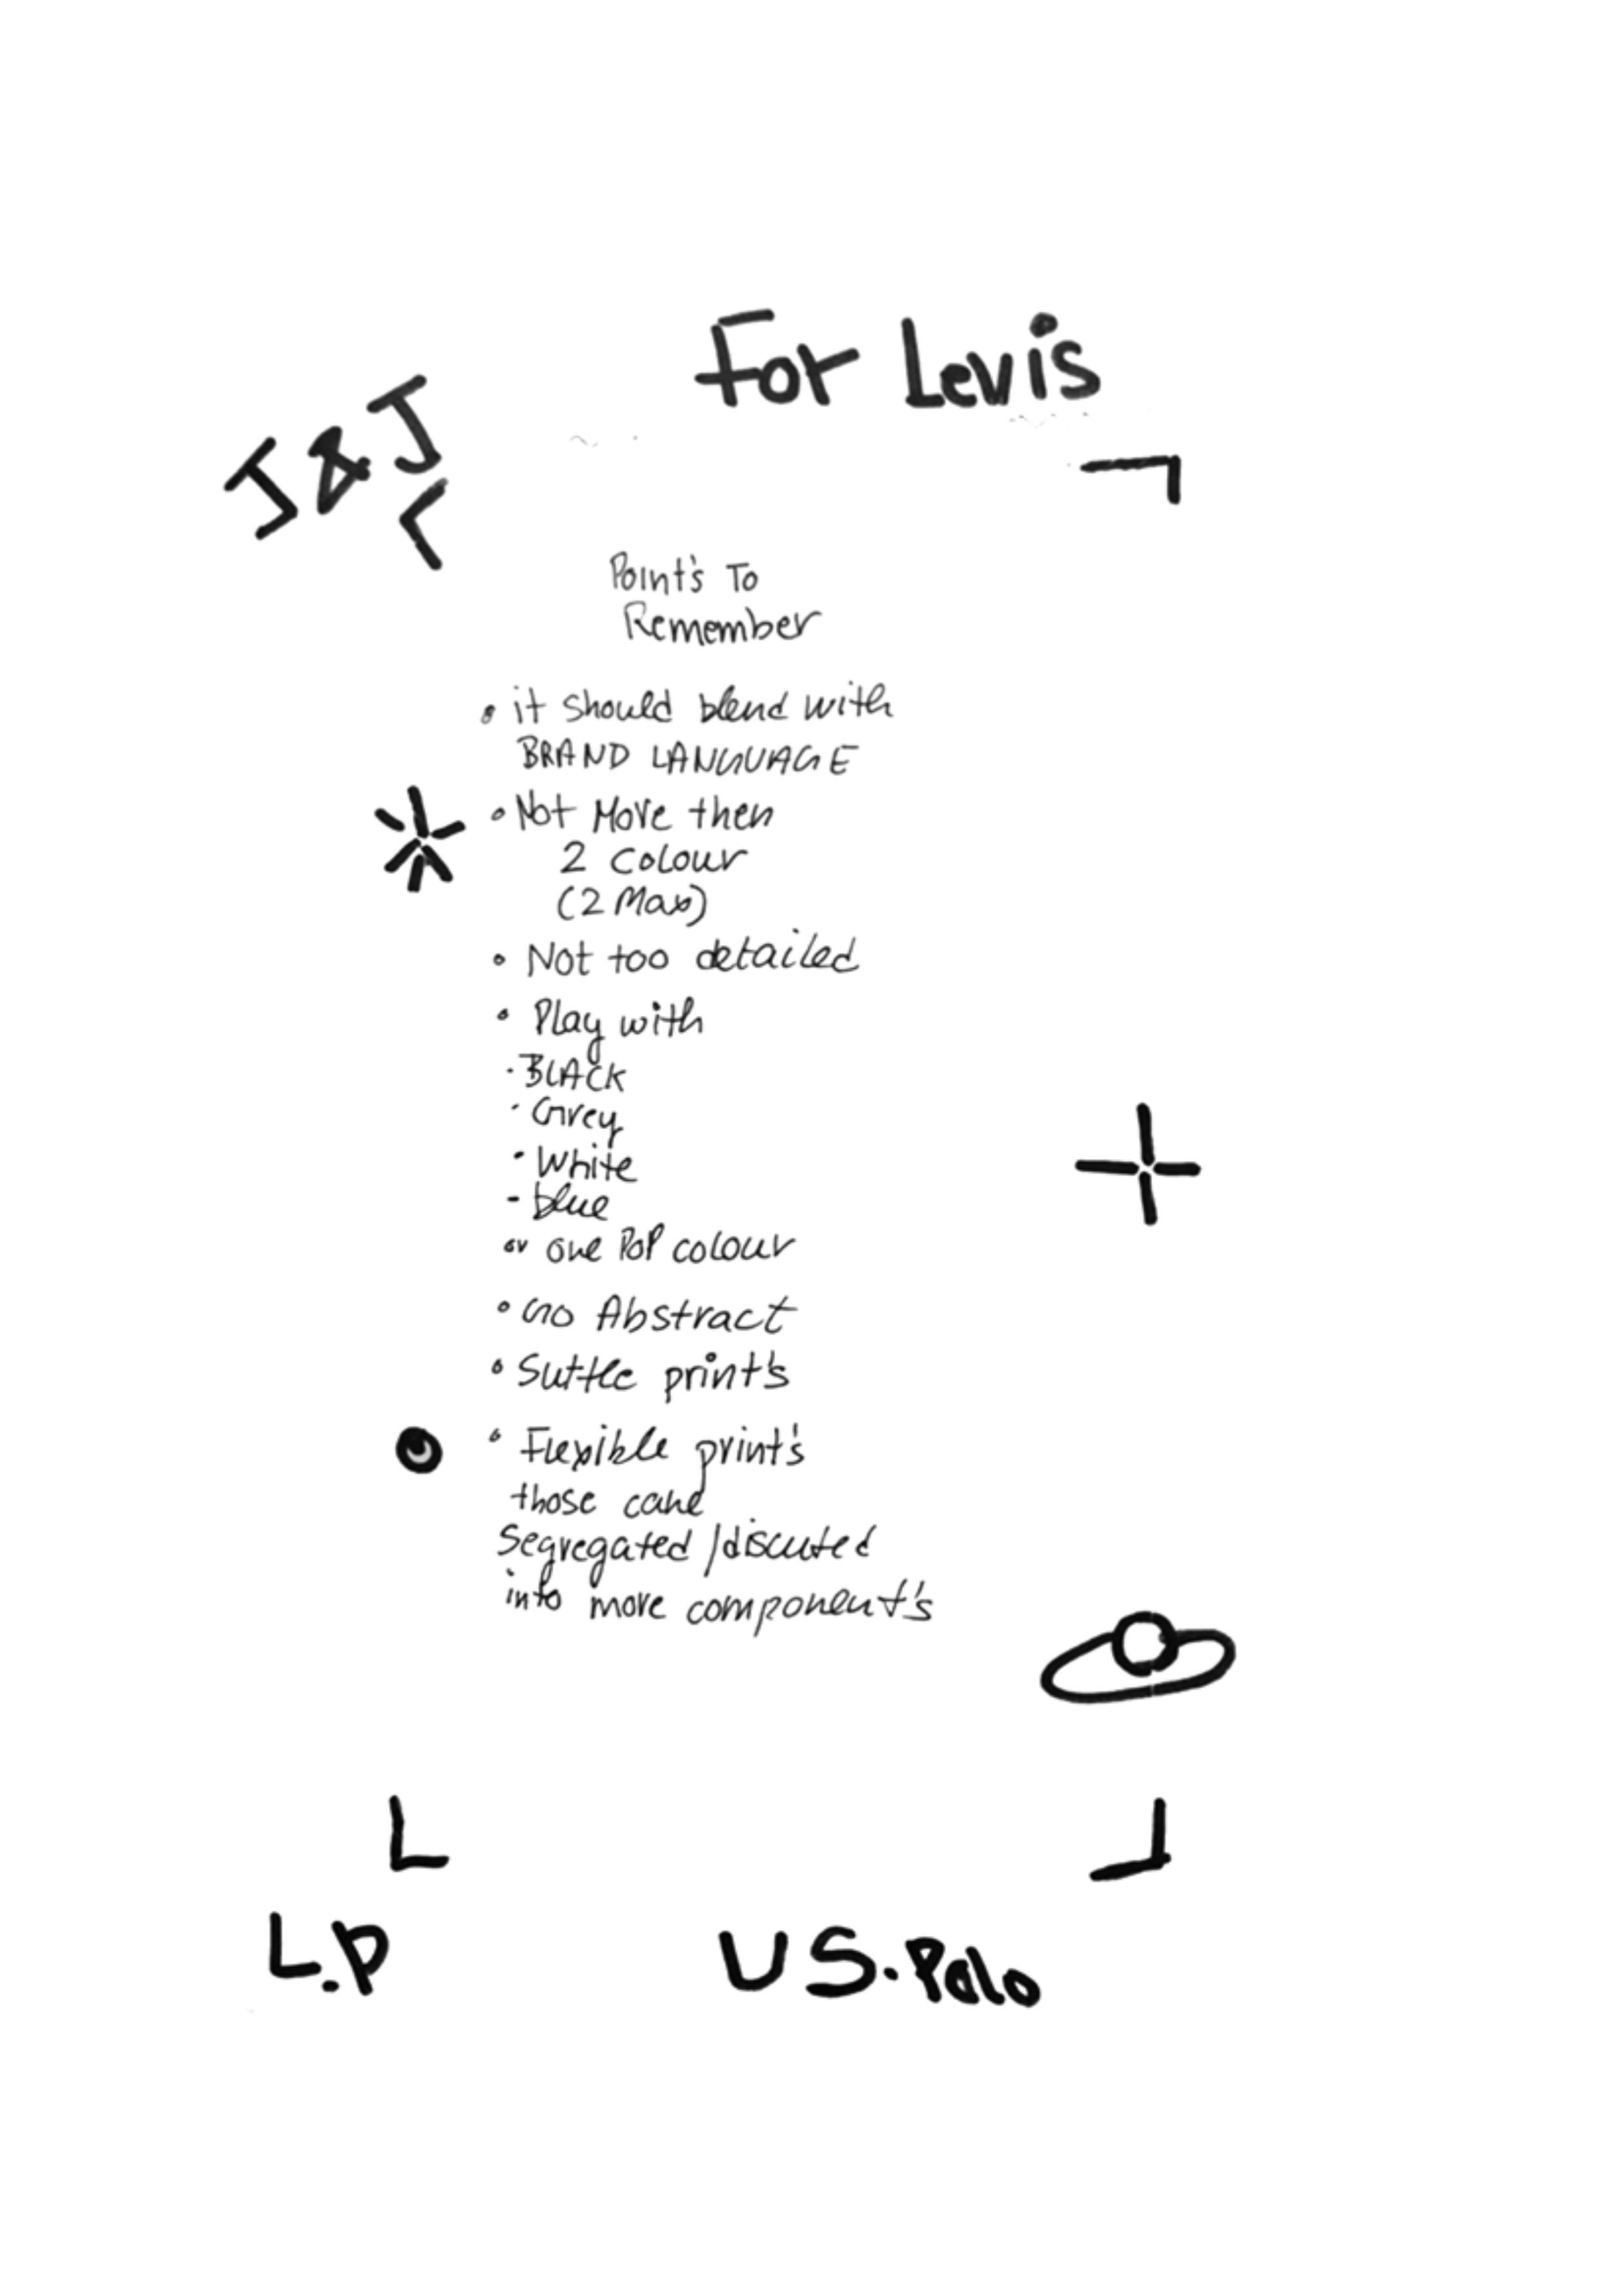 For Levis
J & J
Point's To
Remember
• it should blend with
BRAND LANGUAGE
• Not More then
2 colour
(2 Max)
• Not too detailed
• Play with
· BLACK
· Grey
· White
- blue
or one PoP colour
• Go Abstract
• Suttle print's
• Flexible print's
those cane
Segregated / discuted
into more component's
L.P
U S. Polo